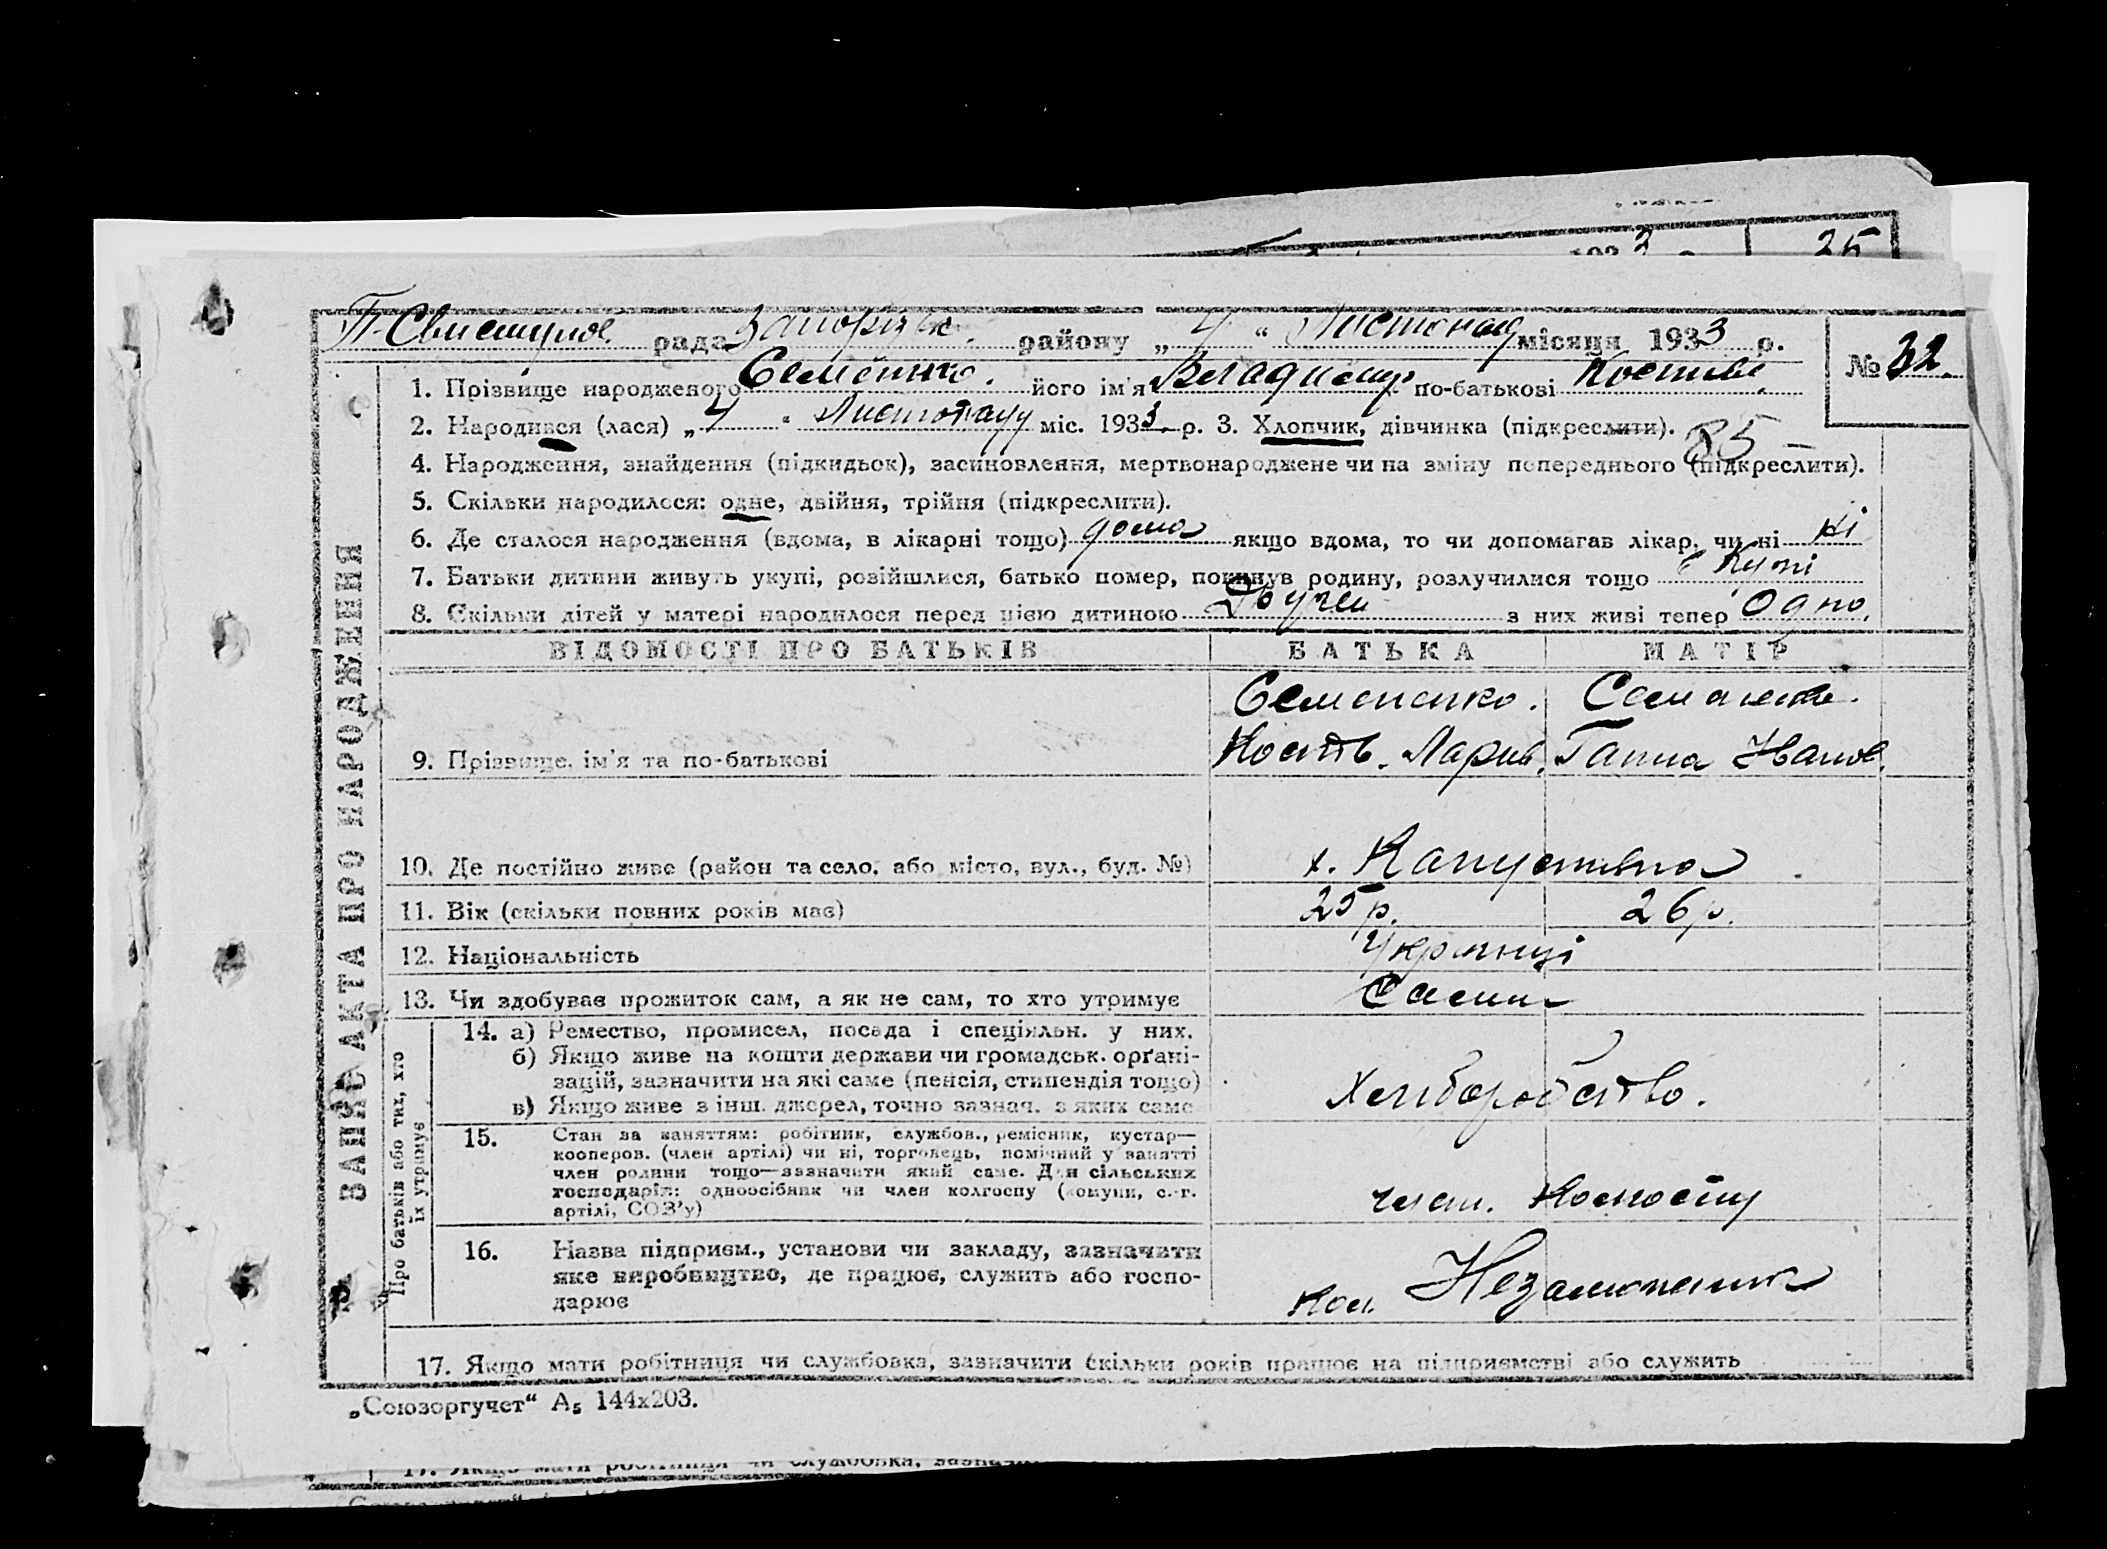 25
П-Свистунов. рада Запорізьк. району „ 4 “ Листопад місяця 1933 р.
№ 32.
1. Прізвище народженого Семенко. його ім'я Владимир по-батькові Костянт.
2. Народився (лася) „ 4 “ Листопаду міс. 1933 р. 3. Хлопчик, дівчинка (підкреслити).
85 –
4. Народження, знайдення (підкидьок), засиновлення, мертвонароджене чи на зміну попереднього (підкреслити).
5. Скільки народилося: одне, двійня, трійня (підкреслити).
6. Де сталося народження (вдома, в лікарні тощо) дома якщо вдома, то чи допомагав лікар, чи ні ні
7. Батьки дитини живуть укупі, розійшлися, батько помер, покинув родину, розлучилися тощо в Купі
8. Скільки дітей у матері народилося перед цією дитиною з них живі тепер Одно.
ВІДОМОСТІ ПРО БАТЬКІВ БАТЬКА МАТІР
Семененко.
9. Прізвище, ім'я та по-батькові Кость. Ларив. Ганна Иванов.
10. Де постійно живе (район та село, або місто, вул., буд. №) х. Капустяна
11. Вік (скільки повних років має) 25 р. 26 р.
12. Національність Українці
13. Чи здобуває прожиток сам, а як не сам, то хто утримує Самі
14. а) Ремество, промисел, посада і спеціяльн. у них.
б) Якщо живе на кошти держави чи громадськ. орґані-
зацій, зазначити на які саме (пенсія, стипендія тощо)
в) Якщо живе з інш. джерел, точно зазнач. з яких саме
Хлиборобство.
15. Стан за заняттям: робітник, службов., ремісник, кустар—
кооперов. (член артілі) чи ні, торговець, помічний у занятті
член родини тощо—зазначити який саме. Для сільських
господарів: одноосібник чи член колгоспу (комуни, с.-г.
артілі, СОЗ'у)
член. Колгоспу
16. Назва підприєм., установи чи закладу, зазначити
яке виробництво, де працює, служить або госпо-
дарює
Кол. Незаможник
17. Якщо мати робітниця чи службовка, зазначити скільки років працює на підприємстві або служить
ЗАПИС АКТА ПРО НАРОДЖЕННЯ
Про батьків або тих, хто
їх утримує
„Союзоргучет“ А5 144х203.
17. Якщо мати робітниця чи службовка,